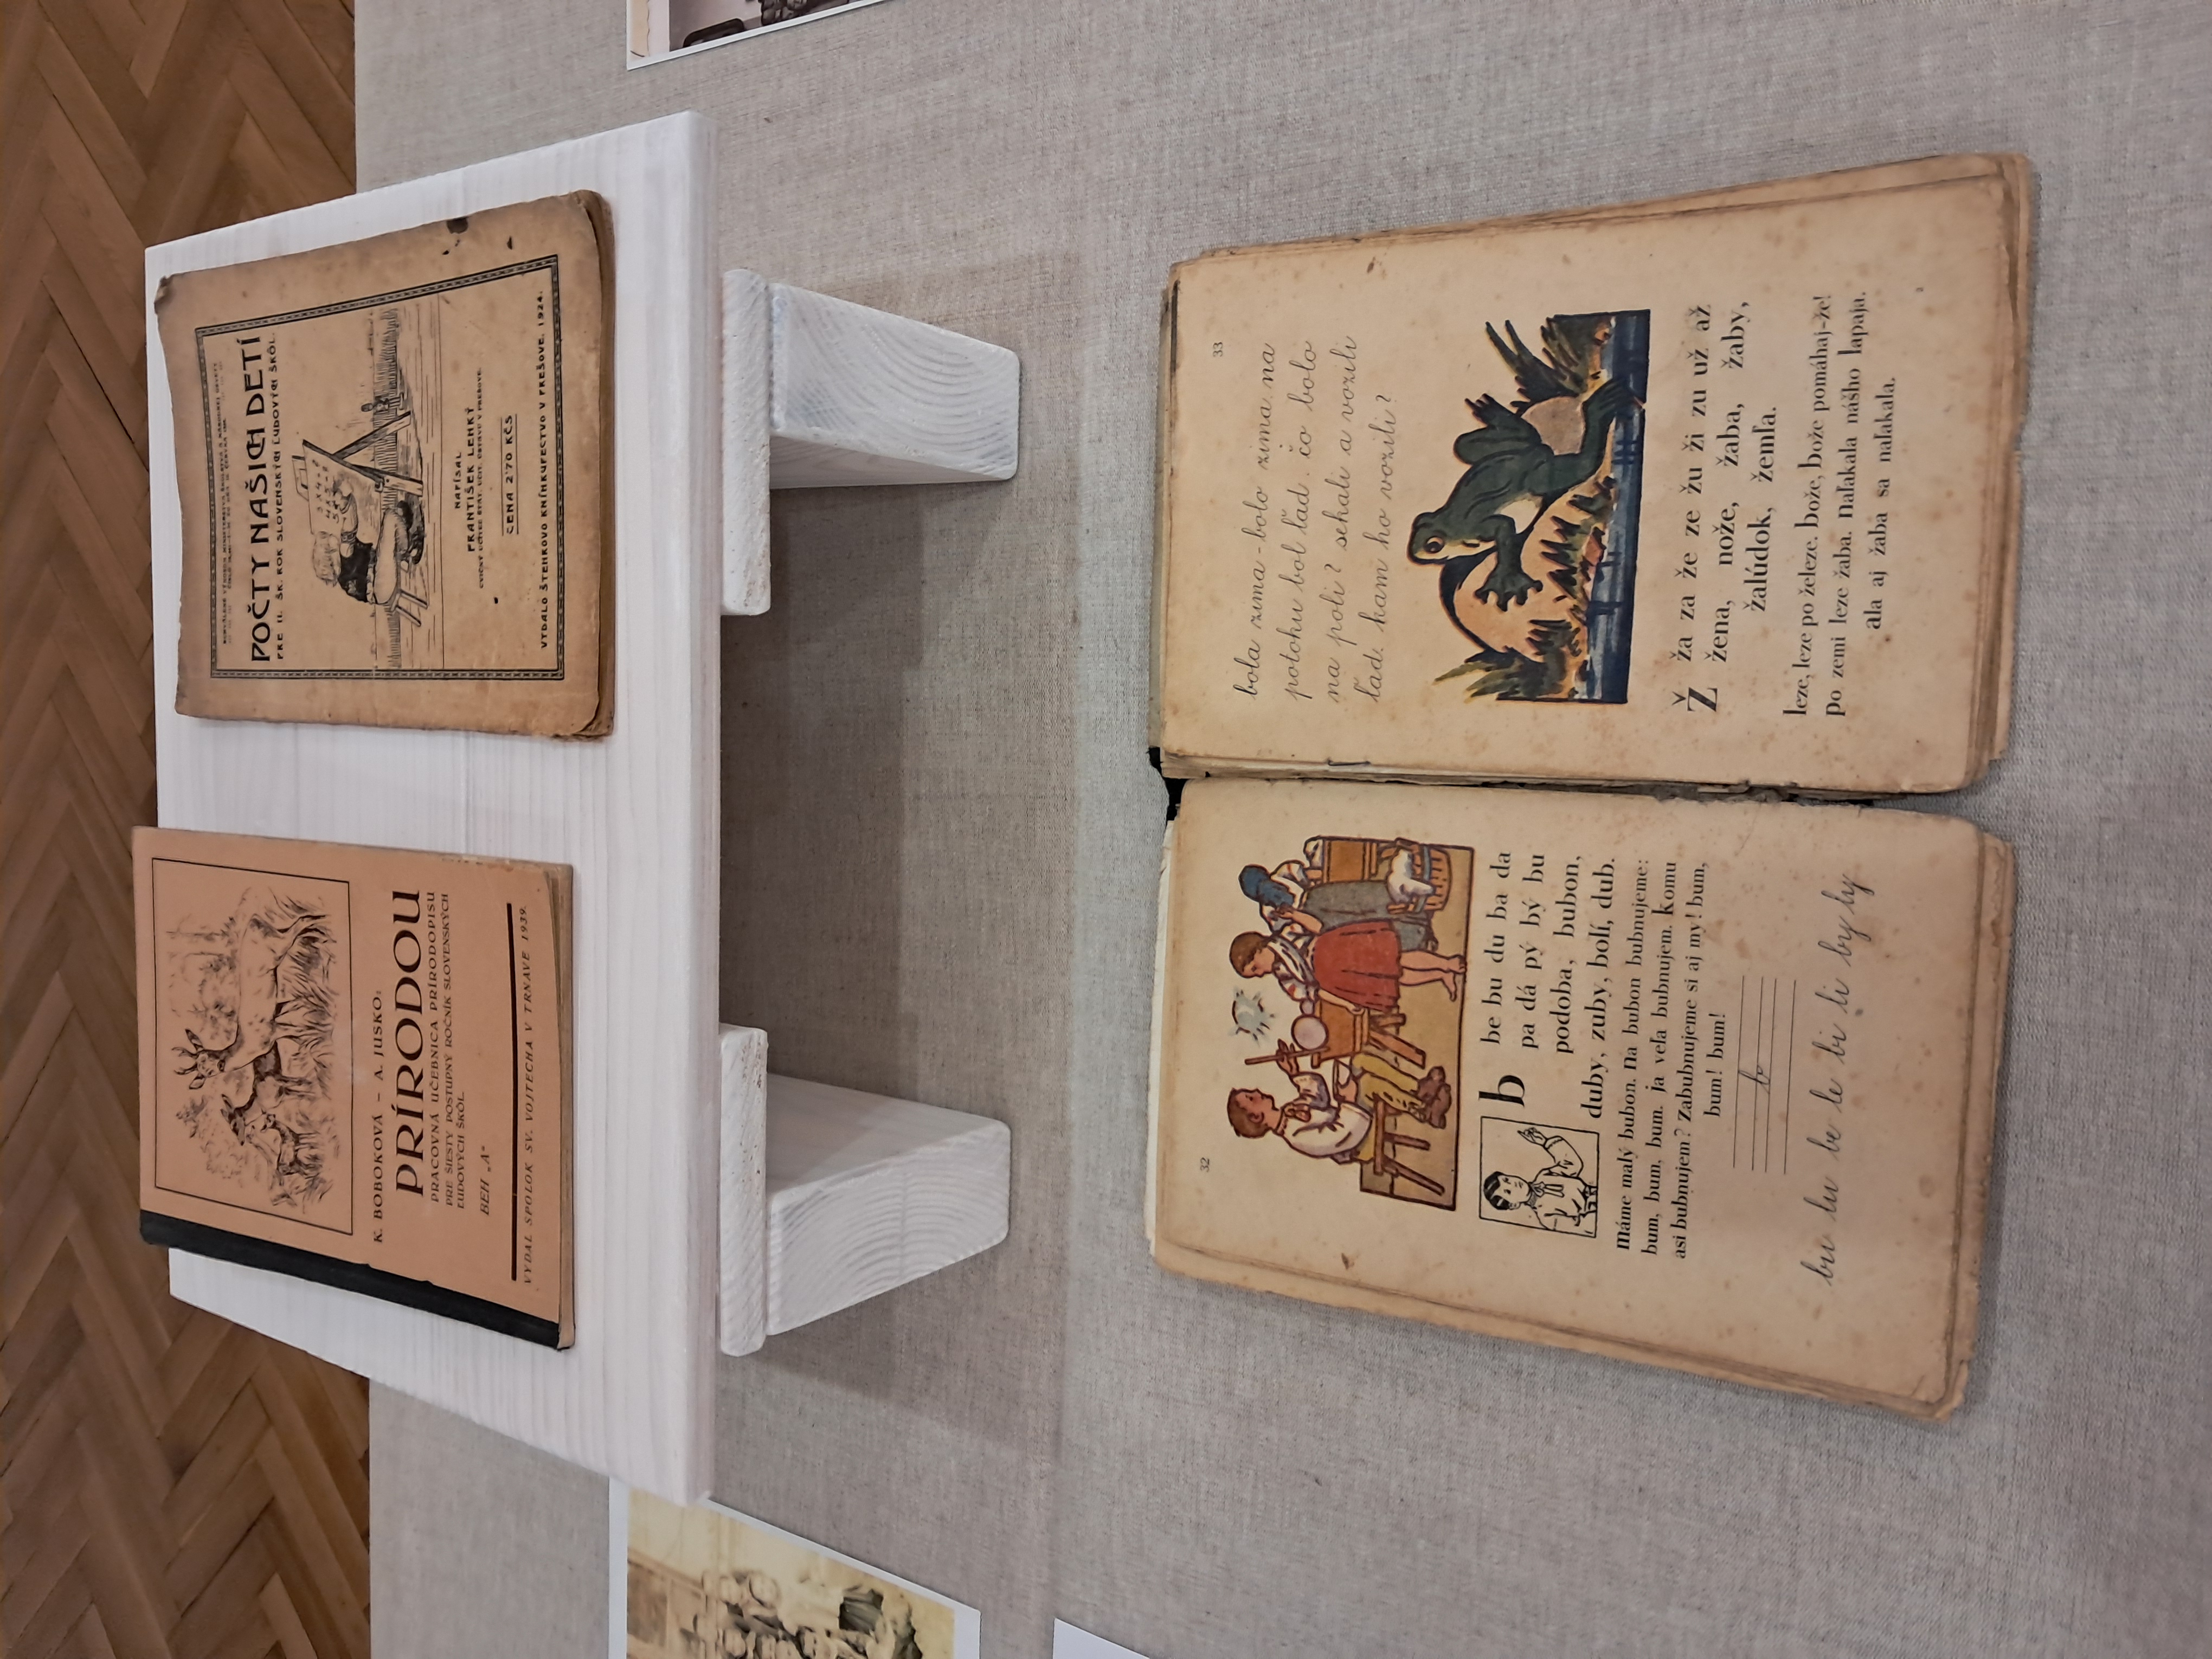 K. BOBOKOVÁ – A. JUSKO:
PRÍRODOU
PRACOVNÁ UČEBNICA PRÍRODOPISU
PRE ŠIESTY POSTUPNÝ ROČNÍK SLOVENSKÝCH
ĽUDOVÝCH ŠKÔL
BEH „A“
VYDAL SPOLOK SV. VOJTECHA V TRNAVE 1939.
POČTY NAŠICH DETÍ
PRE II. ŠK. ROK SLOVENSKÝCH ĽUDOVÝCH ŠKÔL.
NAPÍSAL
FRANTIŠEK LEHKÝ
CENA 2'70 KČS
VYDALO ŠTEHROVO KNÍHKUPECTVO V PREŠOVE. 1924.
32
b be bu du ba da
pa dá pý bý bu
podoba, bubon,
duby, zuby, bolí, dub.
máme malý bubon. na bubon bubnujeme:
bum, bum, bum. ja veľa bubnujem. komu
asi bubnujem? zabubnujeme si aj my! bum,
bum! bum!
b
bu lu be le bi li by ly
33
bola zima - bolo zima. na
potoku bol ľad. čo bolo
na poli? sekali a vozili
ľad. kam ho vozili?
Ž ža za že ze žu ži zu už až
žena, nože, žaba, žaby,
žalúdok, žemľa.
leze, leze po železe. bože, bože pomáhaj-že!
po zemi leze žaba. naľakala nášho lapaja.
ala aj žaba sa naľakala.